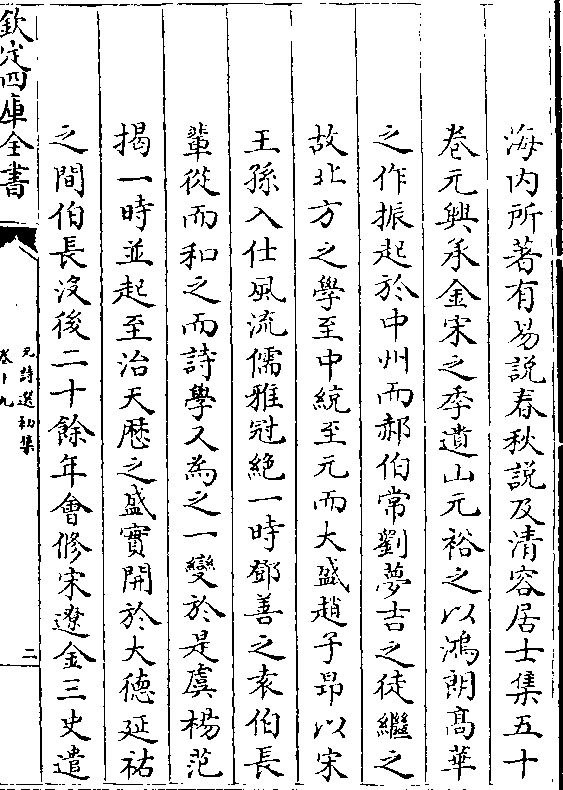 海内所著有易說春秋說及清容居士集五十
卷元興承金宋之季遺山元裕之以鴻朗髙華
之作振起於中州而郝伯常劉夢吉之徒繼之
故北方之學至中統至元而大盛趙子昂以宋
王孫入仕風流儒雅冠絶一時鄧善之袁伯長
輩從而和之而詩學又為之一變於是虞楊范
揭一時並起至治天歴之盛實開於大德延祐
之間伯長沒後二十餘年會修宋遼金三史遣
欽定四庫全書
元詩選初集
卷十九
二